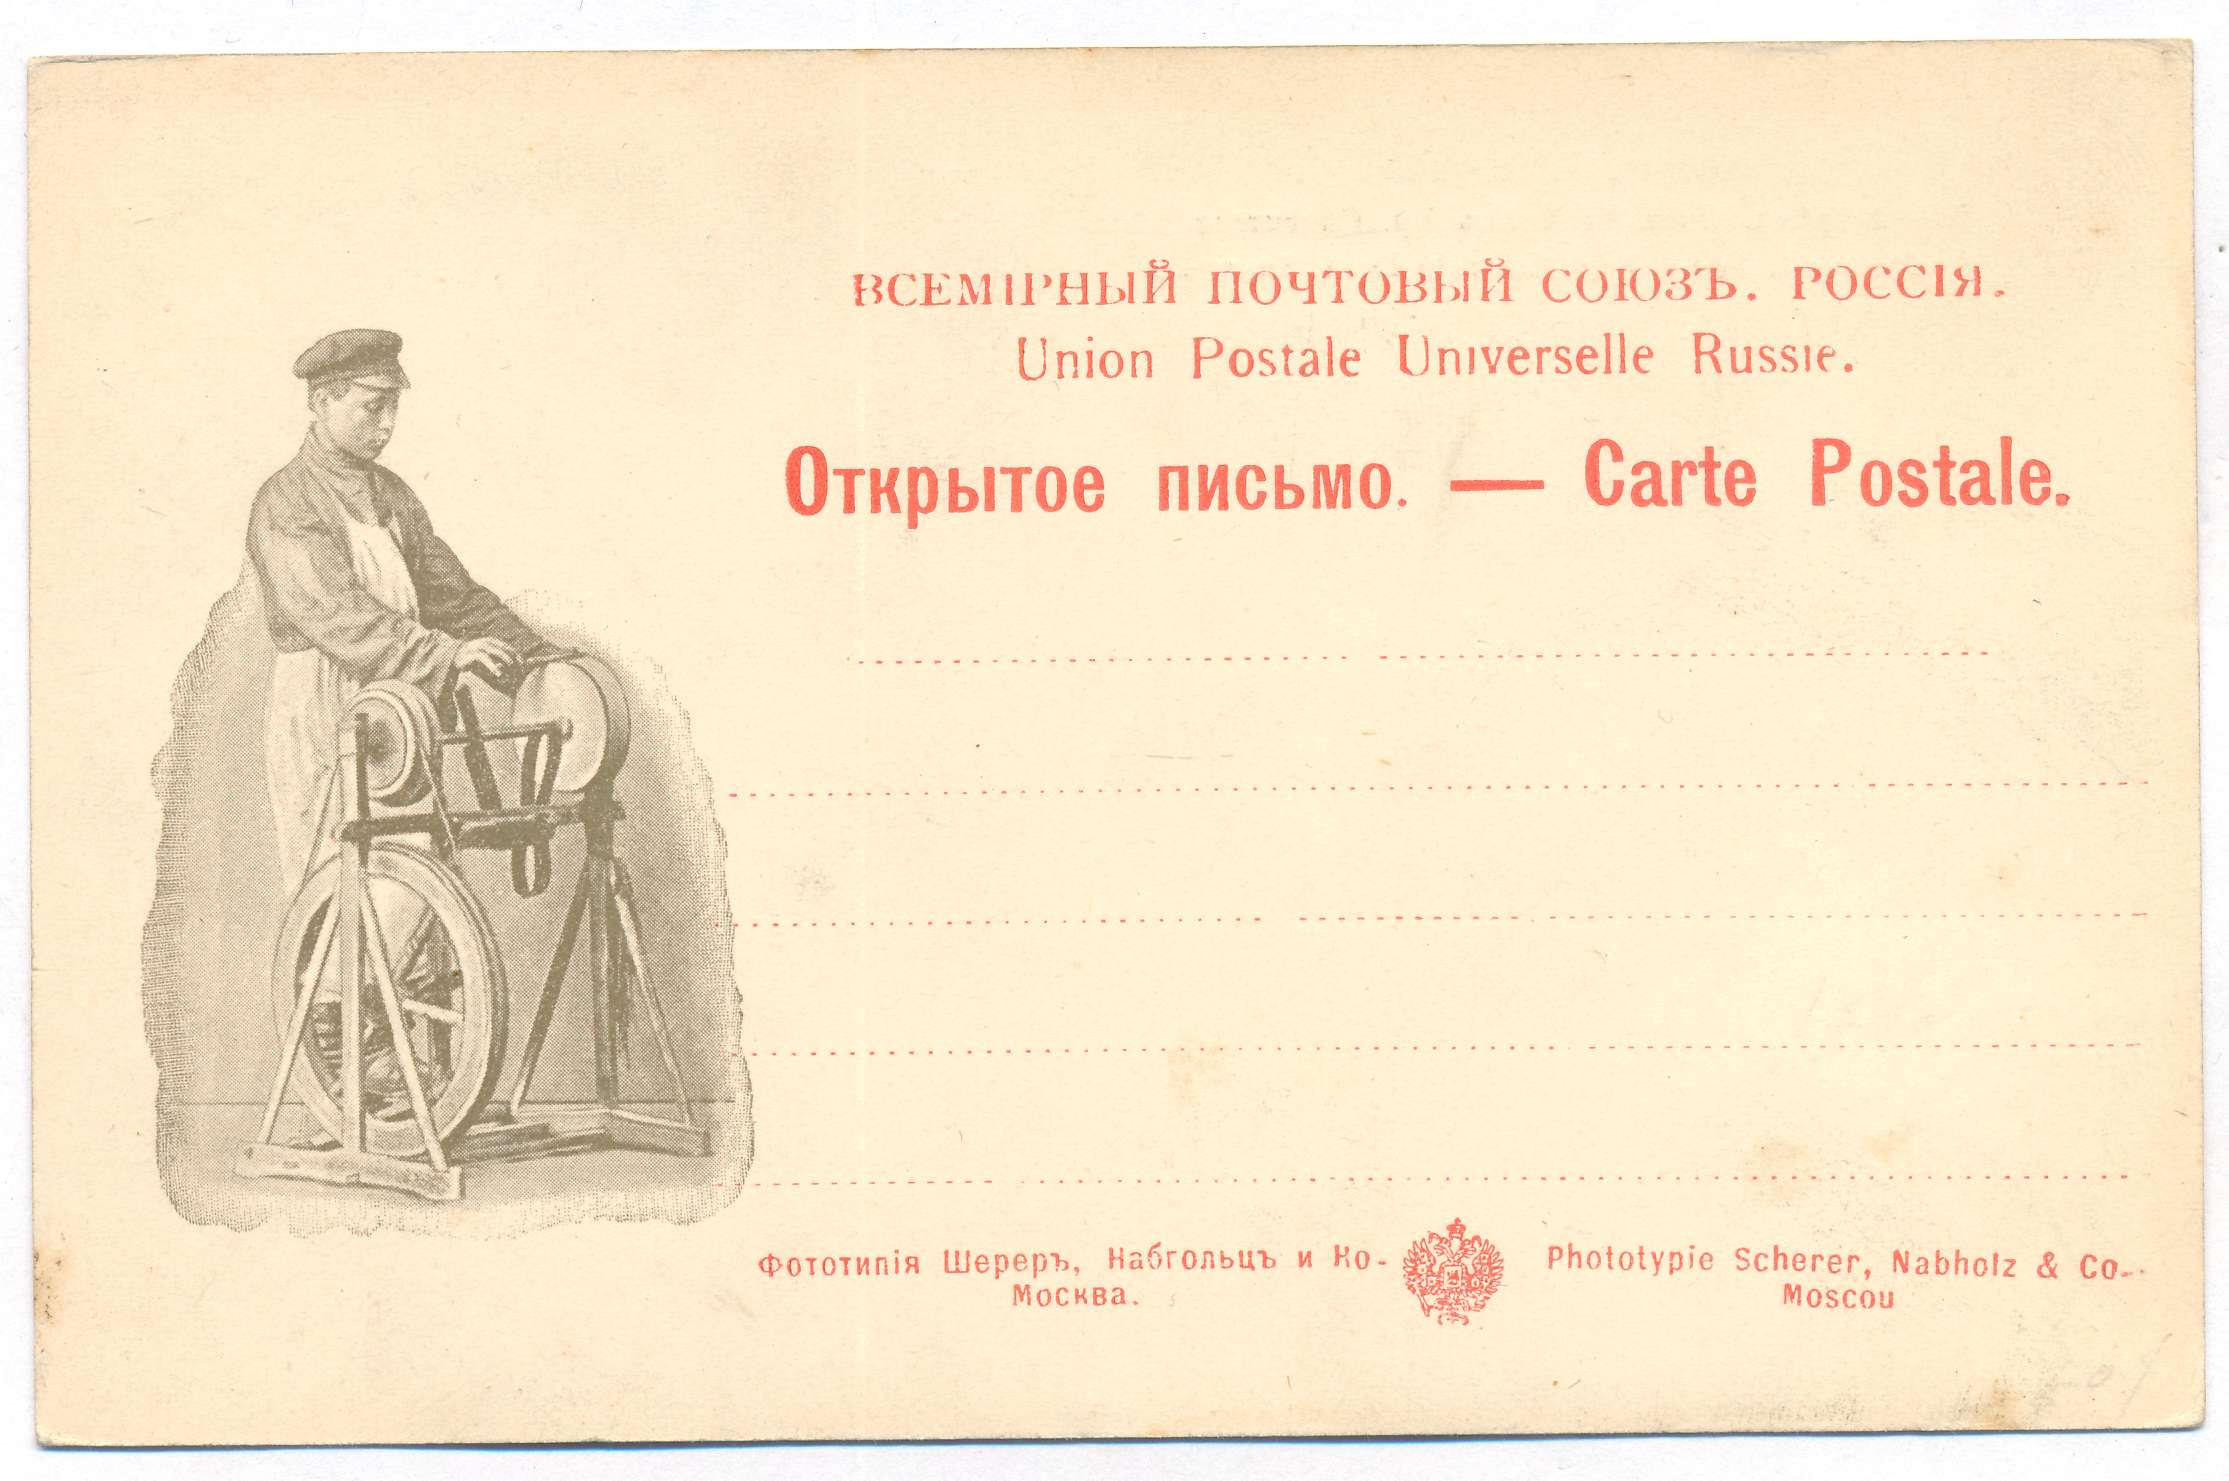 ВСЕМІРНЫЙ ПОЧТОВЫЙ СОЮЗЪ. РОССІЯ.
Union Postale Universelle Russie.
Открытое письмо. — Carte Postale.
Фототипія Шереръ, Набгольцъ и Ко-
Москва.
Phototypie Scherer, Nabholz & Co-
Moscou